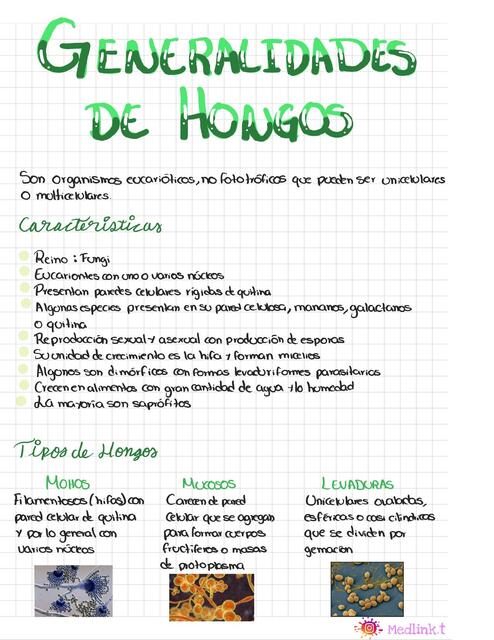 GENERALIDADES
DE HONGOS
Son organismos eucarióticos, no fototróficos que pueden ser unicelulares
o multicelulares.
Características
Reino: Fungi
Eucariontes con uno o varios núcleos
Presentan paredes celulares rígidas de quitina
Algunas especies presentan en su pared celulosa, mananos, galactanos
o quitina
Reproducción sexual y asexual con producción de esporas
Su unidad de crecimiento es la hifa y forman micelios
Algunos son dimórficos con formas levaduriformes parasitarias
Crecen en alimentos con gran cantidad de agua y la humedad
La mayoría son saprófitos
Tipos de Hongos
MOHOS
Filamentosos (hifas) con
pared celular de quitina
y por lo general con
varios núcleos
MUCOSOS
Carecen de pared
celular que se agregan
para formar cuerpos
fructíferos o masas
de protoplasma
LEVADURAS
Unicelulares ovaladas,
esféricas o casi cilíndricas
que se dividen por
gemación
Medlink.t